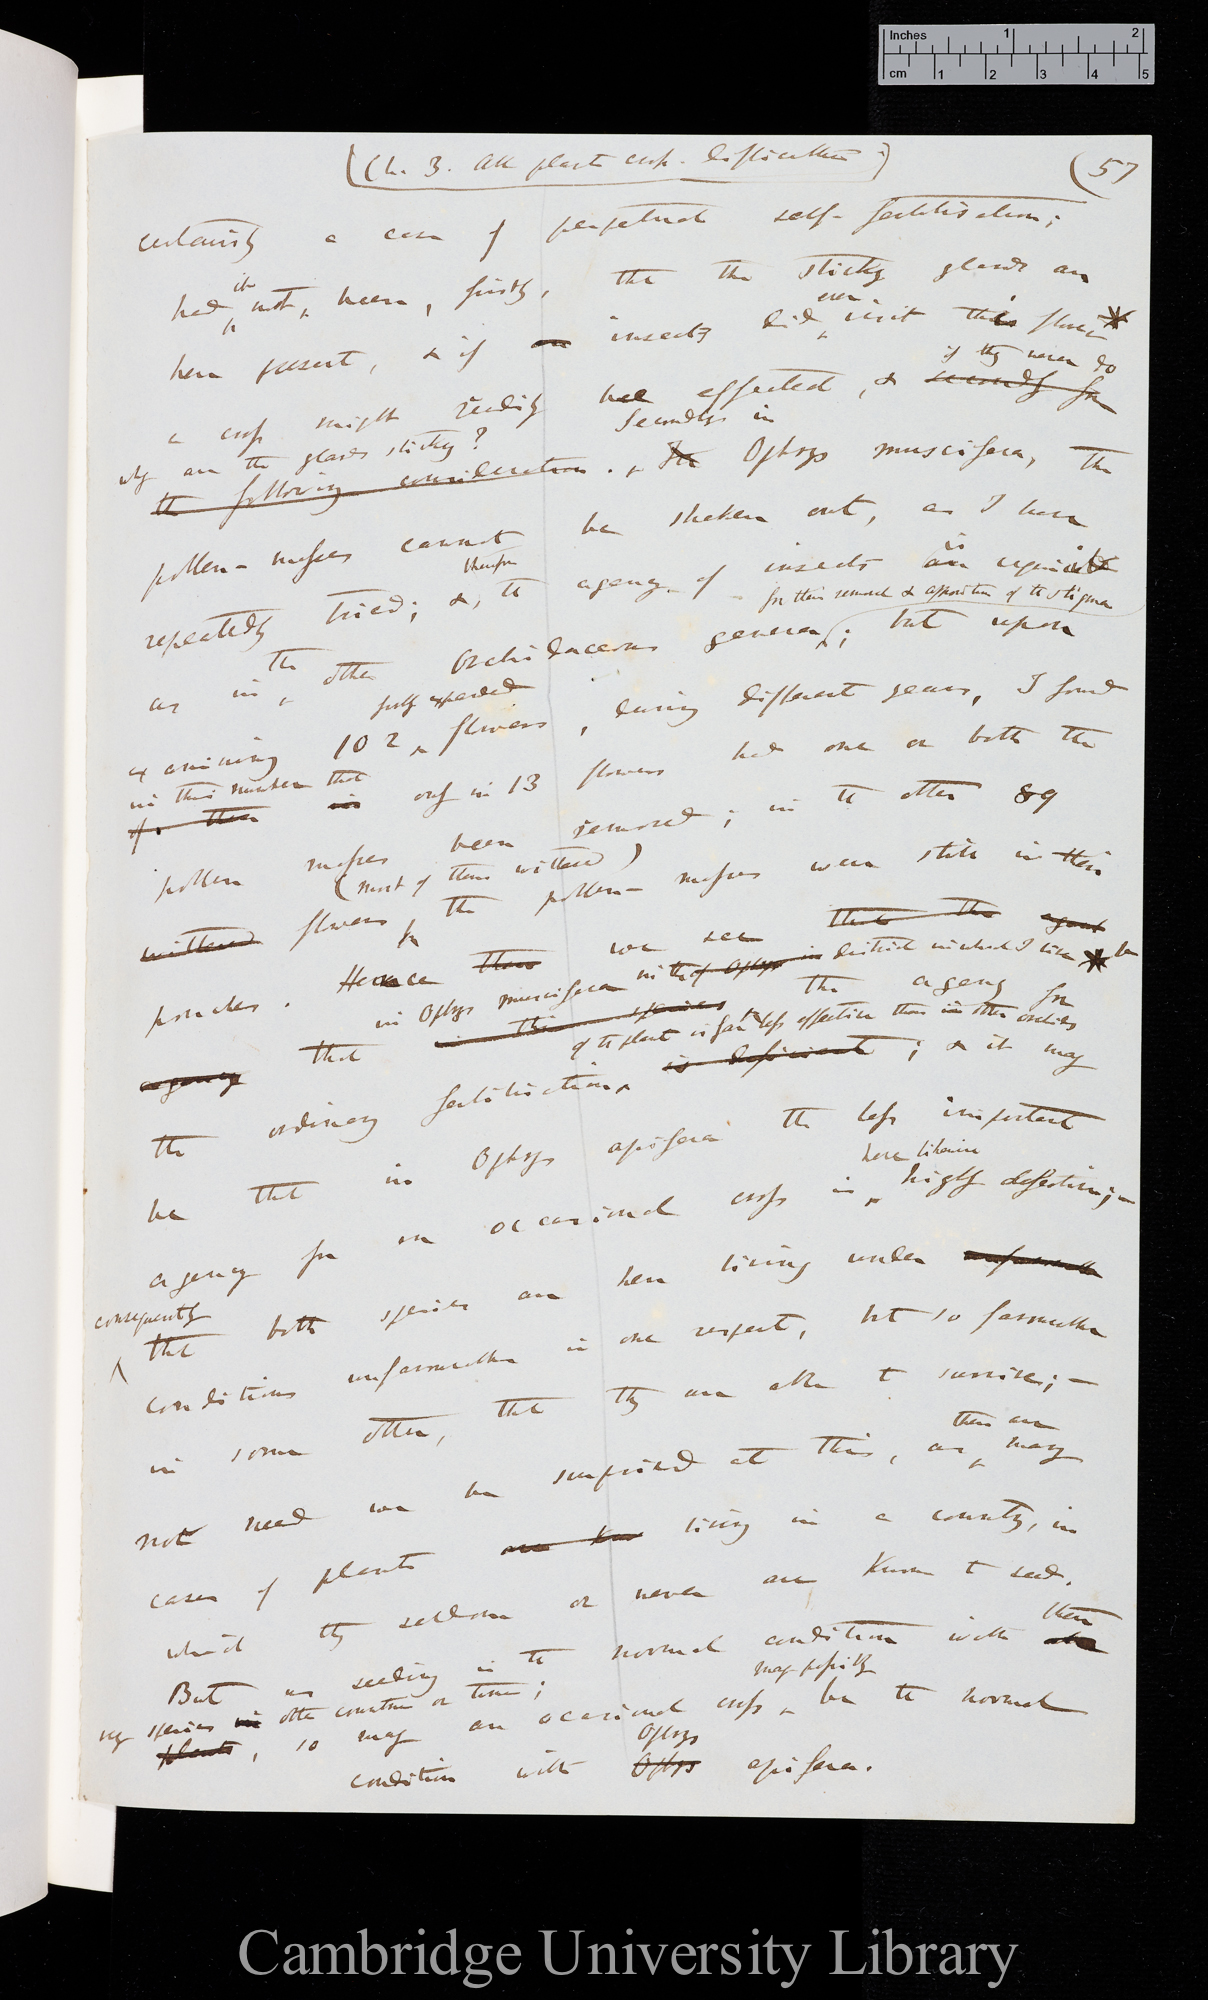 Inches 1 2
cm 1 2 3 4 5
(Ch. 3. All plants cross. Difficulties)
(57
certainly a case of perpetual self-fertilisation;
had it not been, firstly, that the sticky glands are
here present, & if an insects did ever visit this flower *
a cross might readily be effected, & secondly for
if they never do
why are the glands sticky?
the following consideration. Secondly in Ophrys muscifera, the
pollen-masses cannot be shaken out, as I have
repeatedly tried; &, therefore the agency of insects is requisite
for their removal & apposition of the stigma
as in the other Orchidaceous genera; but upon
examining 102 fully expanded flowers, during different years, I found
in this number that
of them in only in 13 flowers had one or both the
pollen masses been removed; in the other 89
(most of them withered)
withered flowers the pollen-masses were still in their
pouches. Hence for these we see that the agent
in Ophrys muscifera in the district in which I live *
agency that in this species the agency for
of the plant is far less effective than in other orchids
the ordinary fertilisation is deficient; & it may
be that in Ophrys apifera the less important
agency for an occasional cross is here likewise highly defective;—
consequently
that both species are here living under unfavourable
conditions unfavourable in one respect, but so favourable
in some other, that they are able to survive;—
not need we be surprised at this, as there are many
cases of plants are know living in a country, in
which they seldom or never are known to seed.
But as seeding is the normal condition with these
very species in other countries or times;
plants, so may an occasional cross may possibly be the normal
condition with Ophrys Ophrys apifera.
Cambridge University Library